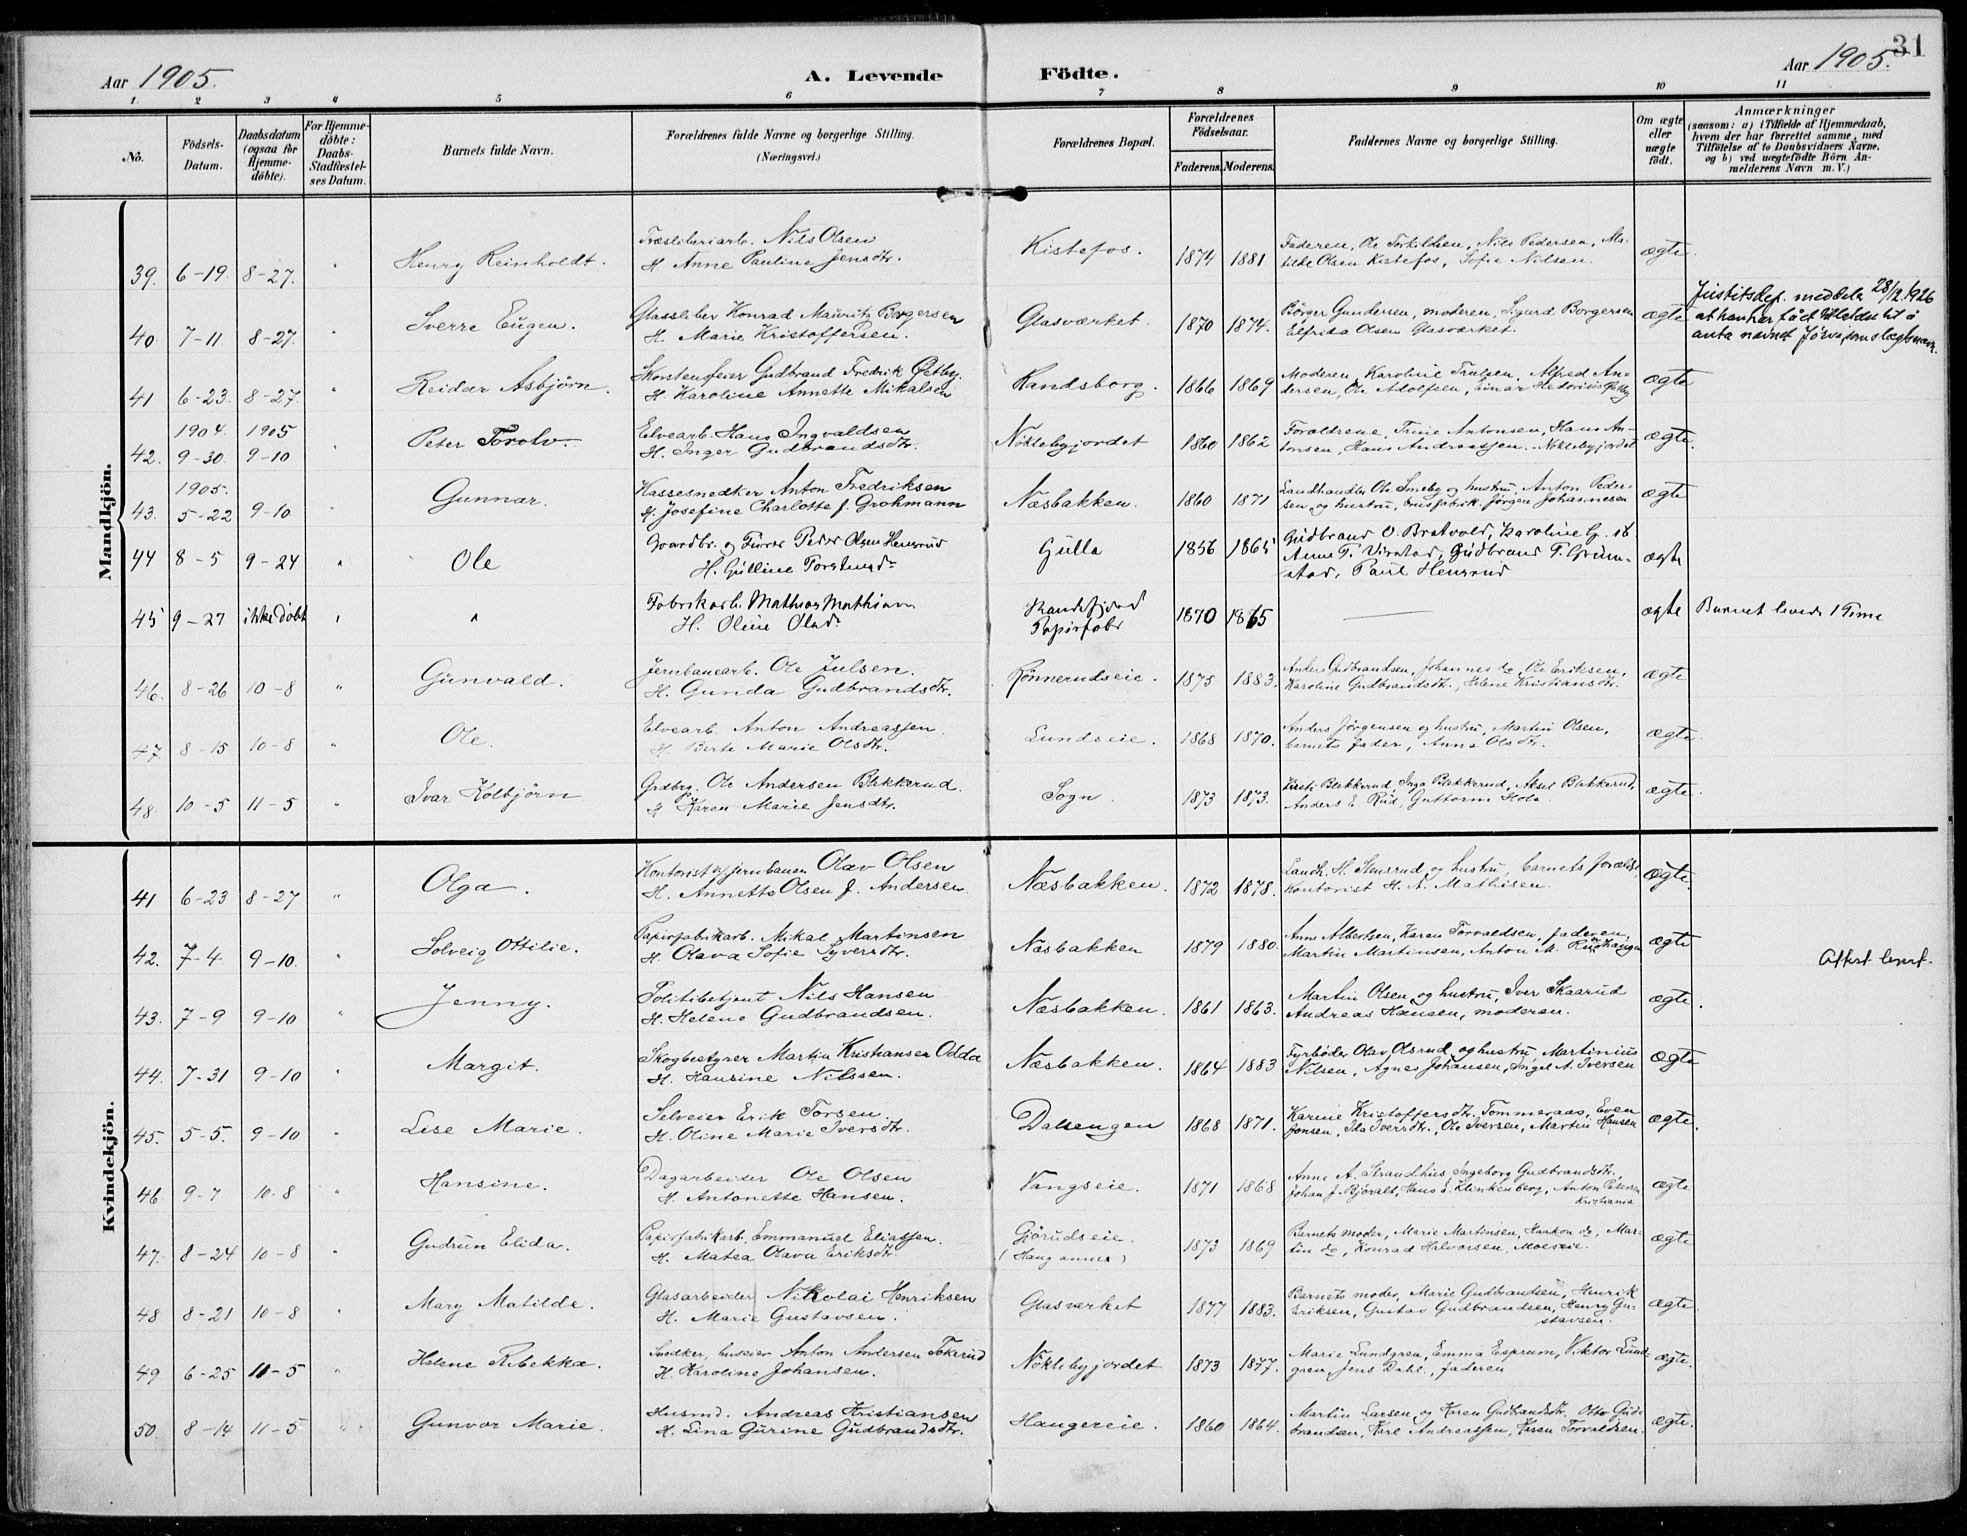 31
Aar 1905.
A. Levende Födte.
Aar 1905.
1. 2 3 4 5 6 7 8 9 10 11
No.
Födsels-Datum.
Daabsdatum (ogsaa for Hjemmedöbte).
For Hjemmedöbte: Daabs-Stadfæstelses Datum.
Barnets fulde Navn.
Forældrenes fulde Navne og borgerlige Stilling. (Næringsvei.)
Forældrenes Bopæl.
Forældrenes Födselsaar. Faderens. Moderens.
Faddernes Navne og borgerlige Stilling.
Om ægte eller uægte födt.
Anmærkninger (saasom: a) i Tilfælde af Hjemmedaab, hvem der har forrettet samme, med Tilföielse af to Daabsvidners Navne, og b) ved uægtefödte Börn Anmelderens Navn m. V.)
Mandkjön.
39. 6-19. 8-27. " Henry Reinholdt. Træsliberiarb. Nils Olsen H. Anne Pauline Jensdtr. Kistefos. 1874 1881 Faderen, Ole Torkildsen, Nils Pedersen, Matilde Olsen Kistefos, Sofie Nilsen. ægte.
40. 7-11 8-27. " Sverre Eugen. Glassliber Konrad Mauritz Borgersen H. Marie Kristoffersen. Glasværket. 1870 1874. Börger Gundersen, moderen, Sigurd Borgersen Elfrida Olsen Glasværket. ægte Justitsdep. meddelt 28/12 1926 at han har fåt tilladelse til å anta navnet som slegtsnavn.
41 6-23. 8-27. " Reidar Asbjörn. Skorstensfeier Gudbrand Fredrik H. Karoline Annette Mikalsen Randsborg. 1866 1869 Moderen, Karoline Trulsen, Alfred Andersen, Ole Adolfsen, Einar ægte
42. 1904. 9-30. 1905 9-10 " Peter Torolv. Elvearb. Hans Ingvaldsen H. Inger Gudbrandsdtr. Nöklebyjordet 1860 1862 Forældrene, Trine Antonsen, Hans Antonsen, Hans Andreassen Nöklebyjordet ægte.
43. 1905. 5-22 9-10 " Gunnar. Kassesnedker Anton Fredriksen H. Josefine Charlotte f. Grohmann Næsbakken. 1860 1871 Landhandler Ole og hustru, Anton Pedersen og hustru, Jörgen Johannesen ægte
44 8-5 9-24 " Ole Gaardbr. og Peder Olsen Hensrud H. Gulline Gulla 1856 1865 Gudbrand O. Bratvold, Karoline G. Anne T. Gudbrand T. Paul Hensrud ægte
45 9-27 ikke döbt " " Fabrikarb. Mathias Mathisen H. Oline Olsdr. Randsfjord Papirfabr 1870 1865 — ægte Barnet levede 1 Time
46. 8-26 10-8 " Gunvald. Jernbanearb. Ole Julsen. H. Gunda Gudbrandsdtr. Rönnerudseie. 1875 1883. Anders Gudbrandsen, Johannes do, Ole Eriksen, Karoline Gudbrandsdtr., Helene Kristiansdtr. ægte
47. 8-15 10-8 " Ole. Elvearb. Anton Andreassen. H. Berte Marie Olsdtr. Lundseie. 1868 1870. Anders Jörgensen og hustru, Martin Olsen, barnets fader, Anna Olsdtr. ægte.
48. 10-5 11-5 " Ivar Kolbjörn Grdbr. Ole Andersen Blekkerud. H. Karen Marie Jensdtr. Sogn. 1873 1873. Kristi Blekkerud, Inga Blekkerud, Aksel Blekkerud, Anders E. Rud, Guttorm Hole. ægte.
Kvindekjön.
41 6-23 8-27 " Olga. Kontorist v/ jernbanen Olav Olsen H. Annette Olsen f. Andersen. Næsbakken. 1872 1878. Landh. H. Stensrud og hustru, barnets forældre, kontorist H. A. Mathisen. ægte.
42. 7-4. 9-10. " Solveig Ottilie. Papirfabrikarb. Mikal Martinsen H. Olava Sofie Syversdtr. Næsbakken 1879 1880. Anne Albertsen, Karen Torvaldsen, faderen, Martin Martinsen, Anton M. Rudhaugen ægte. Attest levert.
43. 7-9 9-10 " Jenny. Politibetjent Nils Hansen H. Helene Gudbrandsen. Næsbakken. 1861 1863. Martin Olsen og hustru, Iver Skaarud Andreas Hansen, moderen. ægte.
44. 7-31 9-10 " Margit. Skogbestyrer Martin Kristiansen Odda H. Hansine Nilssen. Næsbakken. 1864 1883 Fyrböder Olav Olsrud og hustru, Martinius Nilsen, Agnes Johansen, Ingel A. Iversen ægte
45. 5-5. 9-10 " Lise Marie. Selveier Erik Torsen. H. Oline Marie Iversdtr. Dalsengen 1868 1871. Karine Kristoffersdtr. Tommeraas, Even Jonsen, Ida Iversdtr., Ole Iversen, Martin Hansen ægte.
46 9-7 10-8 " Hansine. Dagarbeider Ole Olsen H. Antonette Hansen. Vangseie. 1871 1868 Anne A. Strandhus, Ingeborg Gudbrandsdtr. Johan J. Björalt, Hans E. Klinkenberg, Anton Petersen Kristiania ægte
47. 8-24 10-8 " Gudrun Elida. Papirfabrikarb. Emmanuel Eliassen. H. Matea Olava Eriksdtr. Gjörudseie. (Haug annex) 1873 1869 Barnets moder, Marie Martinsen, Haakon do, Martin do, Konrad Halvorsen, Moeseie. ægte
48 8-21 10-8 " Mary Matilde. Glasarbeider Nikolai Henriksen H. Marie Gustavsen. Glasværket 1877 1883. Barnets moder, Marie Gudbrandsen, Henrik Eriksen, Gustav Gudbrandsen, Henry Gustavsen. ægte.
49 6-25 11-5 " Helene Rebekka. Snedker, huseier Anton Andersen H. Karoline Johansen. Nöklebyjordet 1873 1877. Marie Lundgren, Emma Esprum, Viktor Lundgren, Jens Dahl, faderen ægte.
50. 8-14 11-5 " Gunvor Marie. Husmd. Andreas Kristiansen H. Lina Gurine Gudbrandsdtr. Haugereie. 1860 1864. Martin Larsen og Karen Gudbrandsdtr. Otto Gudbrandsen, Karl Andreassen, Karen Torvaldsen. ægte.